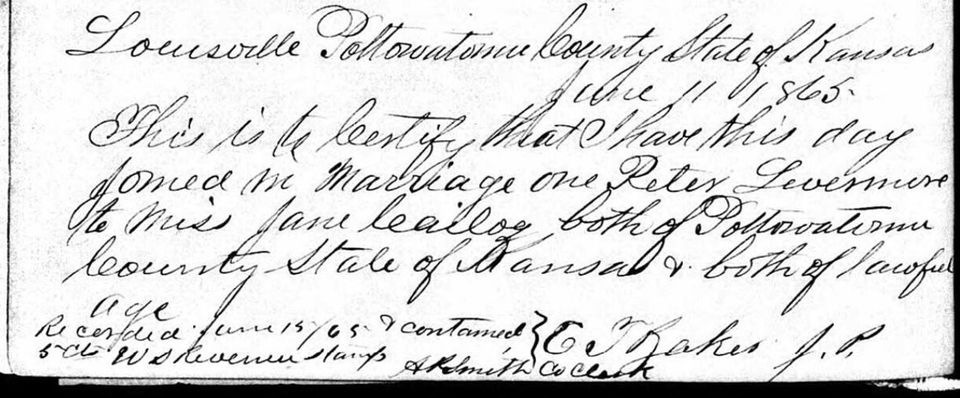 Louisville Pottowatomie County State of Kansas
June 11 1865
This is to Certify that I have this day
Joined in Marriage one Peter Livermore
to Miss Jane both of Pottowatomie
County State of Kansas & both of lawful
age
Recorded June 15/65 & contained
5 cts U S Revenue Stamp
A R Smith Co Clerk
J. P.